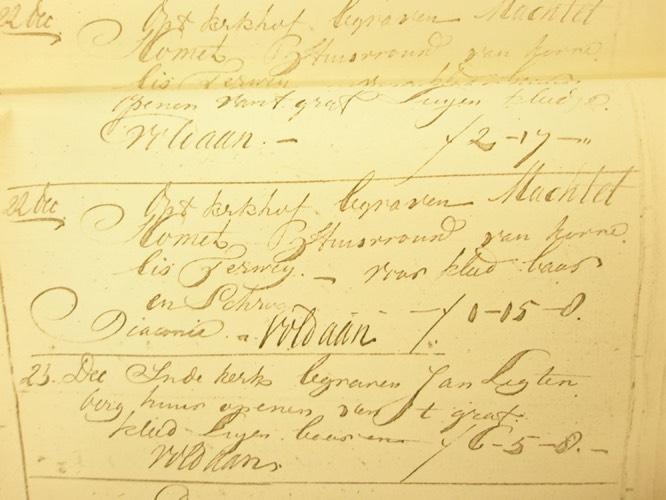 22 Dec. Opt kerkhof begraven Machtet
Homes Huisvrouw van Korne
lis Terwey
openen vant graf Luyen kleed
voldaan. - f 2-17-"
22 Dec. Opt kerkhof begraven Machtet
Homes Huisvrouw van Korne.
lis Terwey. - voor kleed baar
en Schrog
Diaconie. voldaan f. 0-15-8.
23. Dec Inde kerk begraven Jan Ligten
berg huur openen van t graf.
kleed Luyen baaren f 6-5-8.-
voldaan.